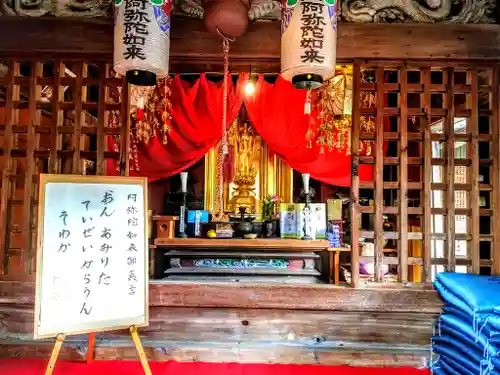 阿弥陀如来
阿弥陀如来
阿弥陀如来御真言
おん あみりた
ていぜいからうん
そわか